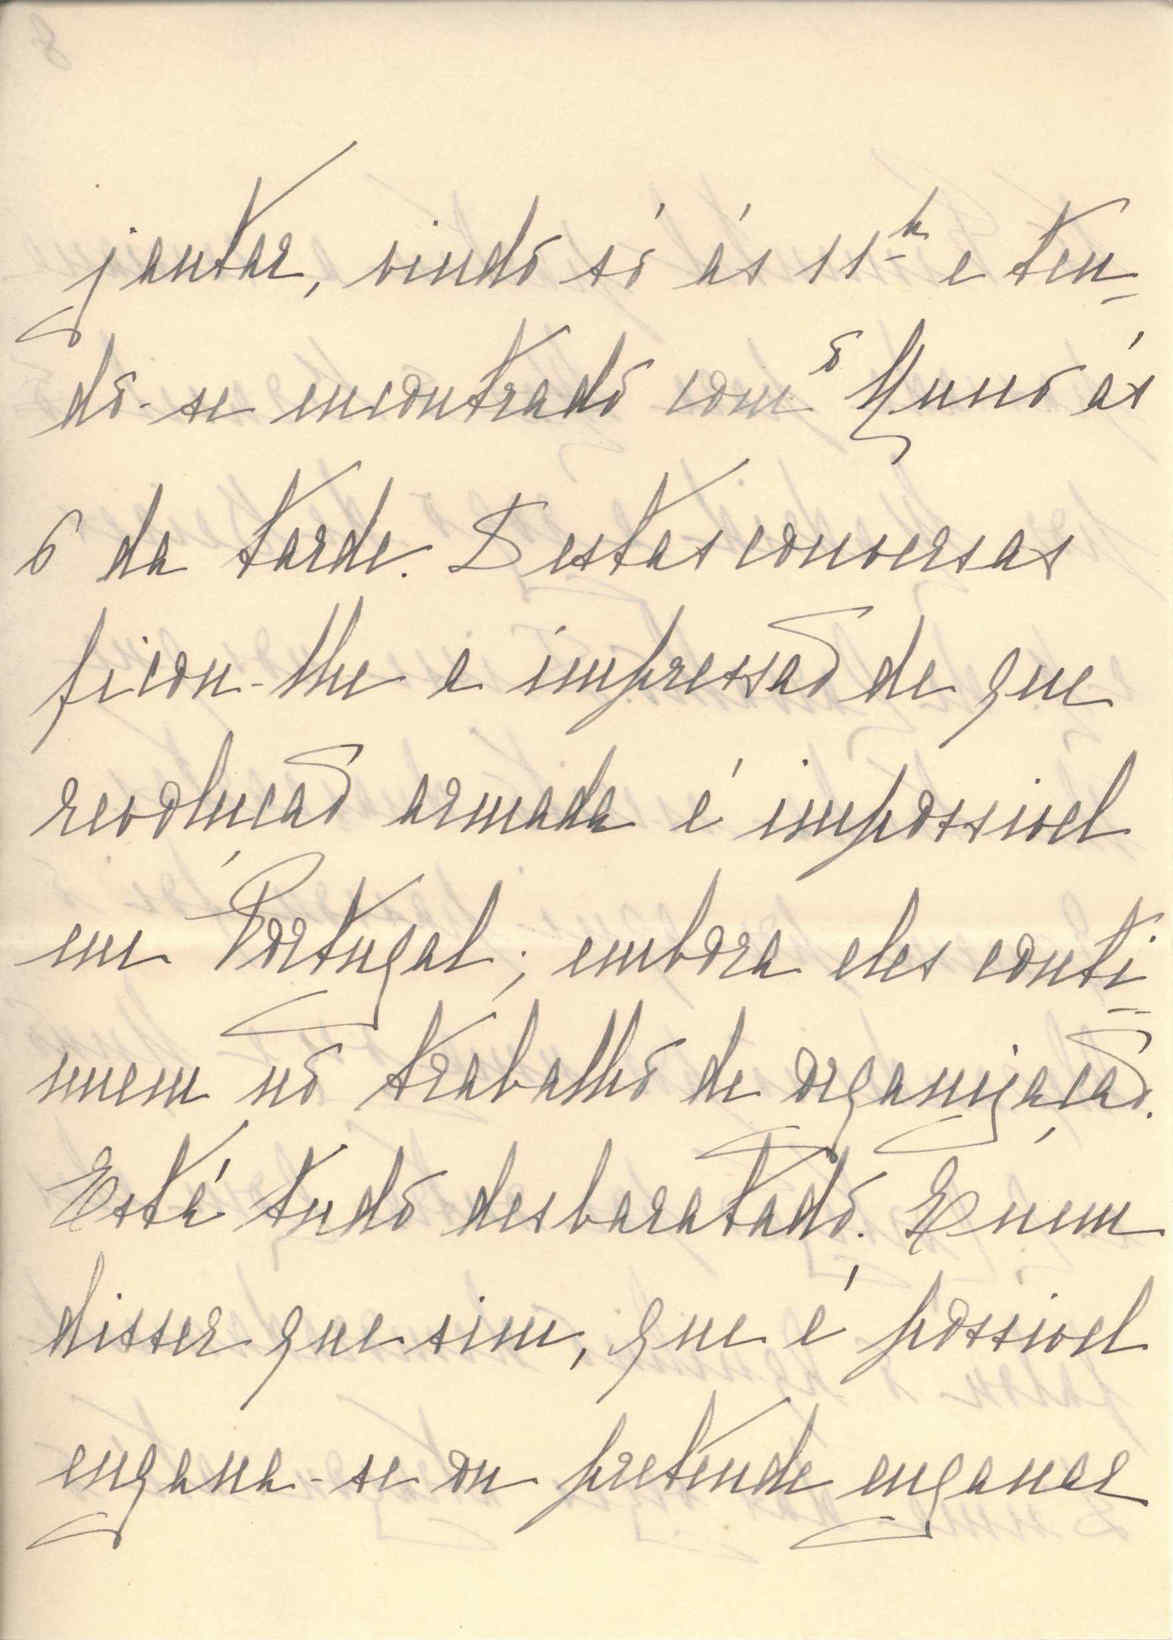 jantar, vindo só ás 11h e ten-
do-se encontrado com o Nuno ás
6 da tarde. Destas conversas
ficou-lhe a impressão de que
revolução armada é impossivel
em Portugal; embora eles conti-
nuem no trabalho de organização.
Está tudo desbaratado. E quem
disser que sim, que é possivel
engana-se ou pretende enganar